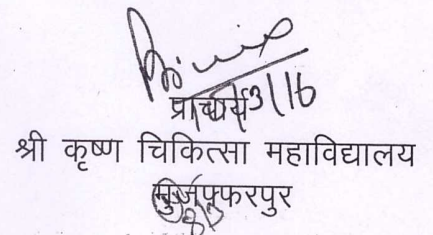 प्राचार्य
श्री कृष्ण चिकित्सा महाविद्यालय
मुजफ्फरपुर